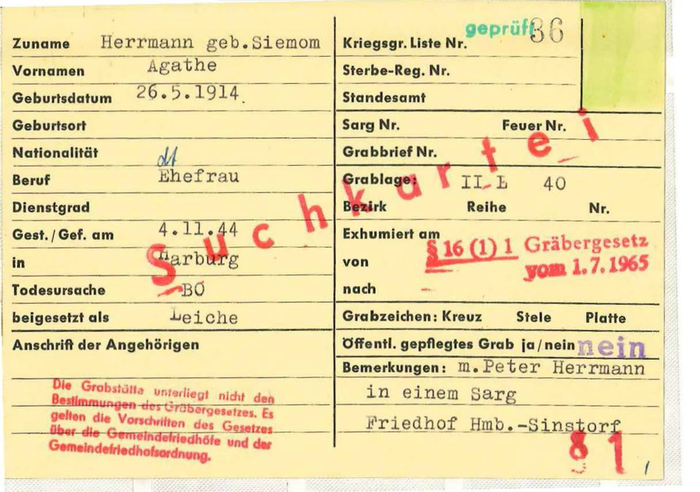 geprüft 86
Zuname Herrmann geb.Siemom
Vornamen Agathe
Geburtsdatum 26.5.1914
Geburtsort
Nationalität dt
Beruf Ehefrau
Dienstgrad
Gest./Gef. am 4.11.44
in Harburg
Todesursache BO
beigesetzt als Leiche
Anschrift der Angehörigen
Die Grabstätte unterliegt nicht den
Bestimmungen des Gräbergesetzes. Es
gelten die Vorschriften des Gesetzes
über die Gemeindefriedhöfe und der
Gemeindefriedhofsordnung.
Suchkartei
Kriegsgr. Liste Nr.
Sterbe-Reg. Nr.
Standesamt
Sarg Nr. Feuer Nr.
Grabbrief Nr.
Grablage: II L 40
Bezirk Reihe Nr.
Exhumiert am
von
nach
§ 16 (1) 1 Gräbergesetz
vom 1.7.1965
Grabzeichen: Kreuz Stele Platte
Öffentl. gepflegtes Grab ja/nein nein
Bemerkungen: m.Peter Herrmann
in einem Sarg
Friedhof Hmb.-Sinstorf
81